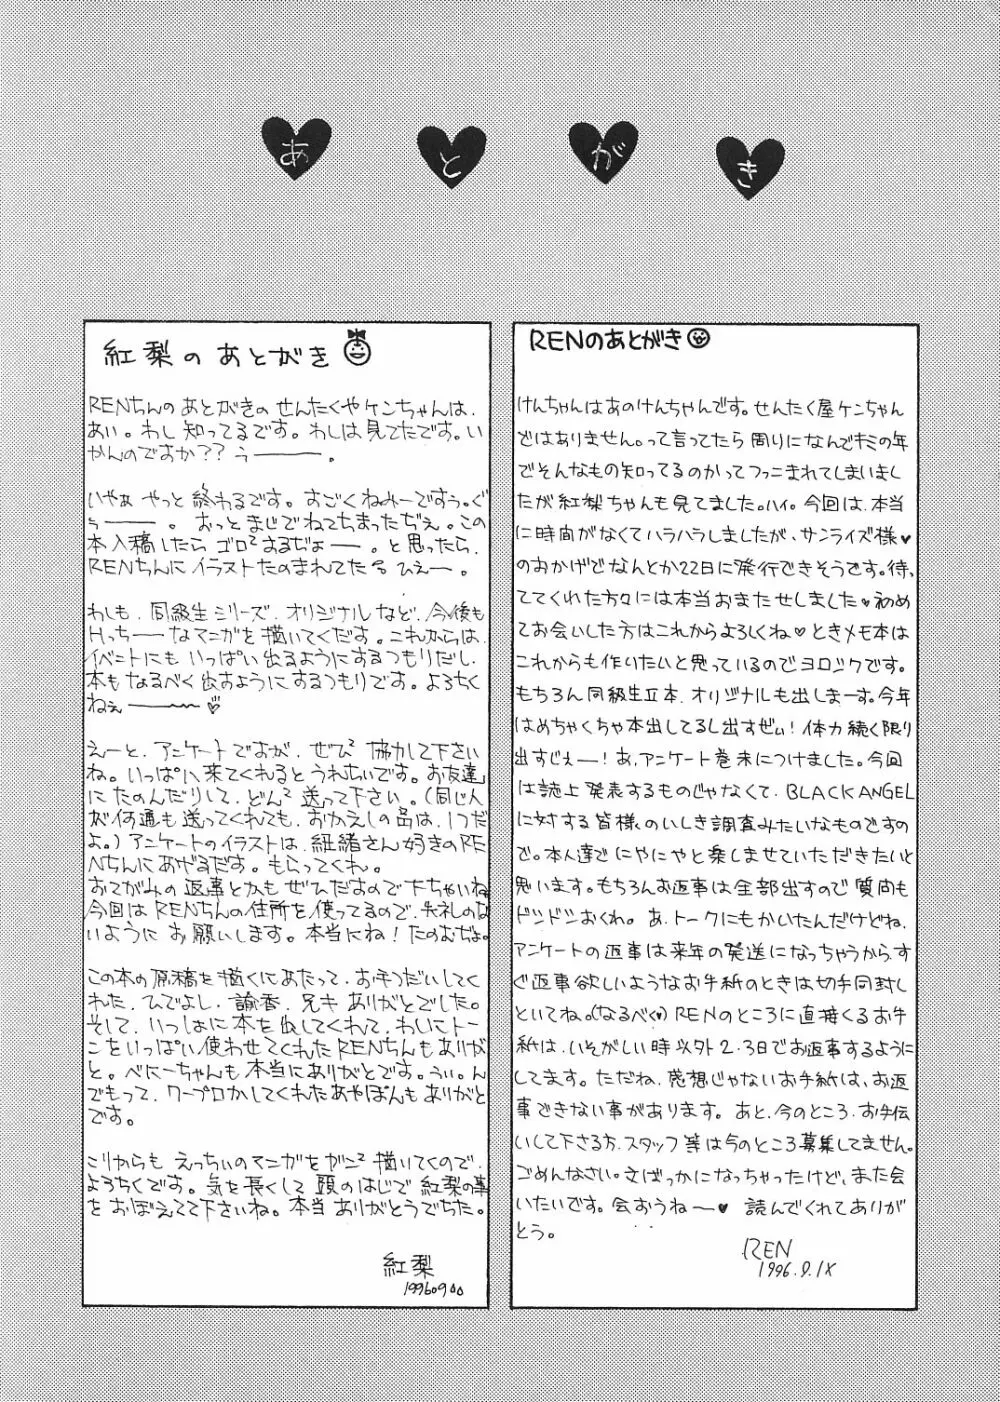 あとがき
紅梨のあとがき
RENちんのあとがきのせんたくやケンちゃんは、
あい。わし知ってるです。わしは見てたです。い
かんのですか??ぅ———。
いやぁ やっと終わるです。すごくねみーですぅ。ぐ
ぅ———。おっとまじでねてちまったぢぇ。この
本入稿したらゴロ²するぢょ——。と思ったら、
RENちんにイラストたのまれてたる ひぇー。
わしも、同級生シリーズ、オリジナルなど、今後も
Hっち——なマンガを描いてくだす。これからは、
イベントにもいっぱい出るようにするつもりだし、
本もなるべく出すようにするつもりです。よろちく
ねぇ———
えーと、アンケートですが、ぜひ²協力して下さい
ね。いっぱい来てくれるとうれちいです。お友達
にたのんだりして、どん²送って下さい。(同じ人
が何通も送ってくれても、おかえしの品は、1つだ
よ。)アンケートのイラストは、紐緒さん好きのRE
Nちんにあげるだす。もらってくれ。
おてがみの返事とかもぜひだすので下ちゃいね
今回はRENちんの住所を使ってるので、失礼のな
いようにお願いします。本当にね!たのむぢょ。
この本の原稿を描くにあたって、お手つだいしてく
れた、ひでよし、諭香、兄キありがとでした。
そして、いっしょに本を出してくれて、わいにトー
こをいっぱい使わせてくれたRENちんもありが
と。べにーちゃんも本当にありがとです。うぃ。ん
でもって、ワープロかしてくれたあやぽんもありがと
です。
こりからも えっちぃのマンガをガン²描いてくので、
よろちくです。気を長くして頭のはじで紅梨の事
をおぼえてて下さいね。本当ありがとうでちた。
紅梨
RENのあとがき
けんちゃんはあのけんちゃんです。せんたく屋ケンちゃん
ではありません。って言ってたら周りになんでキミの年
でそんなもの知ってるのかってツッこまれてしまいまし
たが紅梨ちゃんも見てました。ハイ。今回は、本当
に時間がなくてハラハラしましたが、サンライズ様♥
のおかげでなんとか22日に発行できそうです。待っ
ててくれた方々には本当おまたせしました♥初め
てお会いした方はこれからよろしくね♥ときメモ本は
これからも作りたいと思っているのでヨロシクです。
もちろん同級生Ⅱ本、オリジナルも出しまーす。今年
はめちゃくちゃ本出してるし出すぜぃ!体力続く限り
出すじぇー!あ、アンケート巻末につけました。今回
は誌上発表するものじゃなくて、BLACK ANGEL
に対する皆様のいしき調査みたいなものですの
で。本人達でにやにやと楽しませていただきたいと
思います。もちろんお返事は全部出すので質問も
ドシドシおくれ。あ、トークにもかいたんだけどね、
アンケートの返事は来年の発送になっちゃうからす
ぐ返事欲しいようなお手紙のときは切手同封し
といてね。(なるべく♥)RENのところに直接くるお手
紙は、いそがしい時以外2・3日でお返事するように
してます。ただね、感想じゃないお手紙は、お返
事できない事があります。あと、今のところ、お手伝
いして下さる方、スタッフ等は今のところ募集してません。
ごめんなさい。文ばっかになっちゃったけど、また会
いたいです。会おうね〜♥ 読んでくれてありが
とう。
REN
1996.9.1X